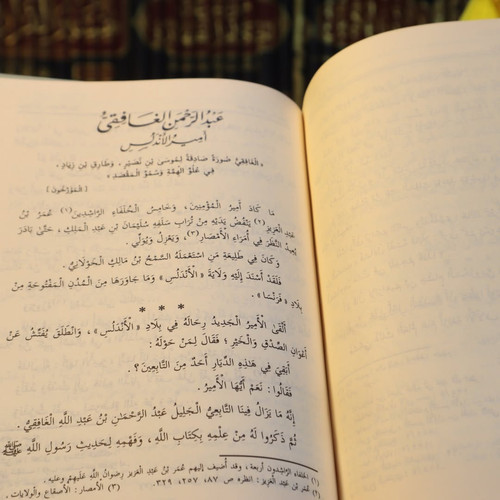 عَبْدُ الرَّحْمَنِ الغَافِقِيُّ
أَمِيرُ الأَنْدَلُسِ
« الْغَافِقِيُّ صُورَةٌ صَادِقَةٌ لِمُوسَى بْنِ نُصَيْرٍ ، وَطَارِقِ بْنِ زِيَادٍ .
فِي عُلُوِّ الْهِمَّةِ وَسُمُوِّ الْمَقْصِدِ »
[ الْمُؤَرِّخُونَ ]
مَا كَادَ أَمِيرُ الْمُؤْمِنِينَ ، وَخَامِسُ الْخُلَفَاءِ الرَّاشِدِينَ(١) عُمَرُ بْنُ
عَبْدِ الْعَزِيزِ(٢) يَنْفُضُ يَدَيْهِ مِنْ تُرَابِ سَلَفِهِ سُلَيْمَانَ بْنِ عَبْدِ الْمَلِكِ ، حَتَّى بَادَرَ
يُعِيدُ النَّظَرَ فِي أُمَرَاءِ الْأَمْصَارِ(٣)، وَيَعْزِلُ وَيُوَلِّي .
وَكَانَ فِي طَلِيعَةِ مَنِ اسْتَعْمَلَهُ السَّمْحُ بْنُ مَالِكٍ الْخَوْلَانِيُّ .
فَلَقَدْ أَسْنَدَ إِلَيْهِ وِلَايَةَ « الْأَنْدَلُسِ » وَمَا جَاوَرَهَا مِنَ الْمُدُنِ الْمَفْتُوحَةِ مِنْ
بِلَادِ « فَرَنْسَا » .
* * *
أَلْقَى الْأَمِيرُ الْجَدِيدُ رِحَالَهُ فِي بِلَادِ « الْأَنْدَلُسِ » ، وَانْطَلَقَ يُفَتِّشُ عَنْ
أَعْوَانِ الصِّدْقِ وَالْخَيْرِ ؛ فَقَالَ لِمَنْ حَوْلَهُ :
أَبَقِيَ فِي هَذِهِ الدِّيَارِ أَحَدٌ مِنَ التَّابِعِينَ ؟ .
فَقَالُوا : نَعَمْ أَيُّهَا الْأَمِيرُ .
إِنَّهُ مَا يَزَالُ فِينَا التَّابِعِيُّ الْجَلِيلُ عَبْدُ الرَّحْمَٰنِ بْنُ عَبْدِ اللَّهِ الْغَافِقِيُّ .
ثُمَّ ذَكَرُوا لَهُ مِنْ عِلْمِهِ بِكِتَابِ اللَّهِ ، وَفَهْمِهِ لِحَدِيثِ رَسُولِ اللَّهِ ﷺ
(١) الخلفاء الرَّاشِدُون أربعة ، وقد أُضيف إليهم عُمَر بْنُ عَبْدِ الْعَزِيز رِضوانُ اللَّهِ عَلَيهم وعليه .
(٢) عُمَر بْنُ عَبْدِ الْعَزِيز : انظره ص ٨٧، ٢٥٧، ٣٢٩. (٣) الأمصار : الأصقاع والولايات .